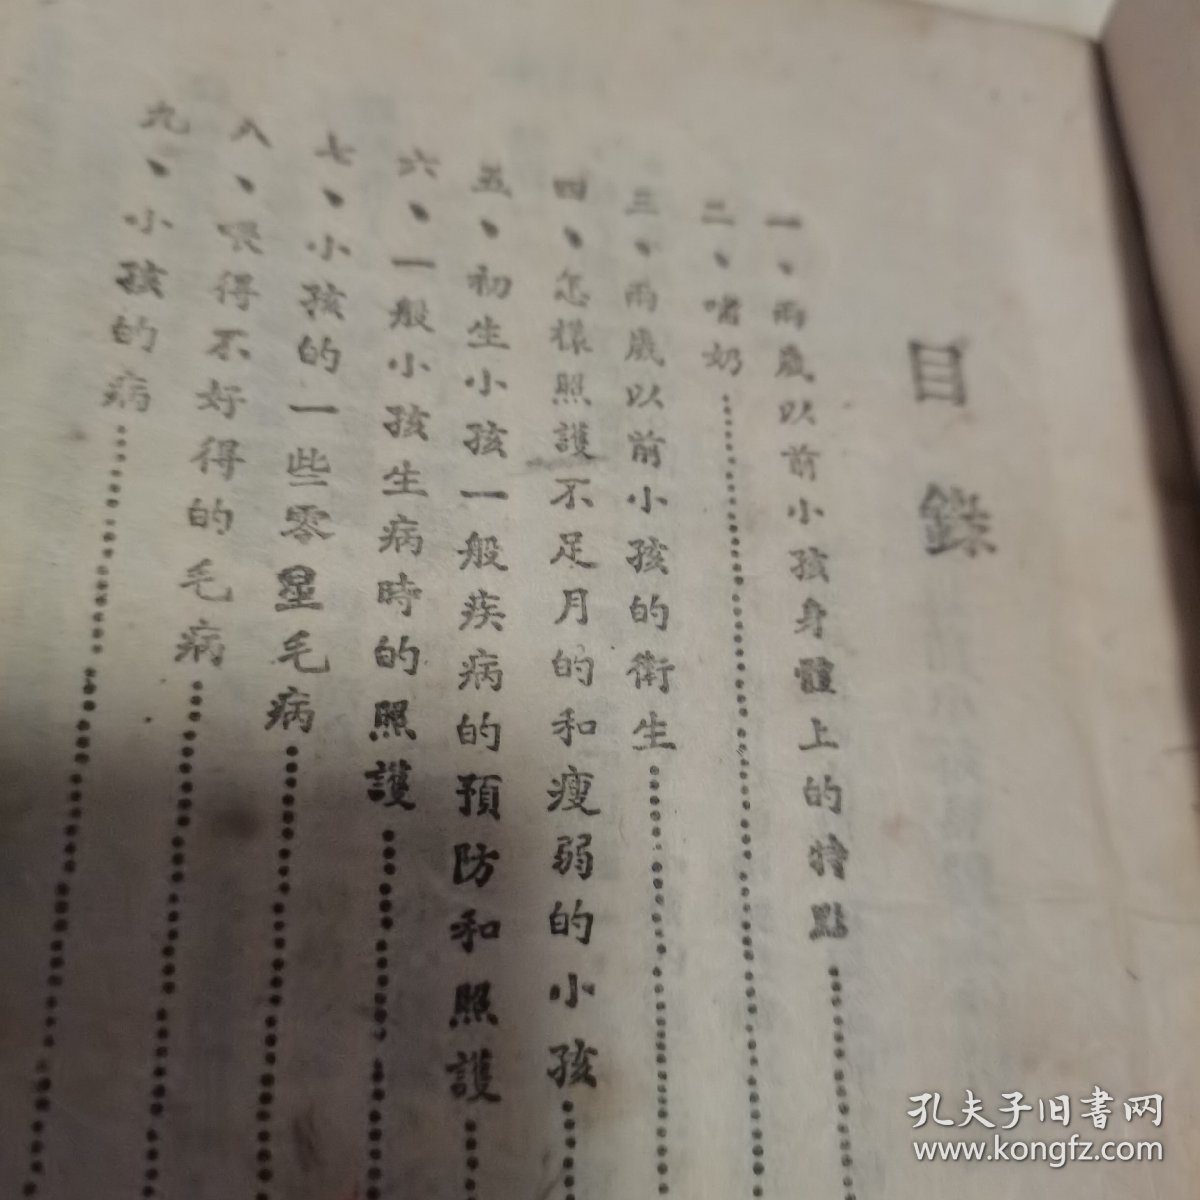 目錄
一、兩歲以前小孩身體上的特點
二、喂奶
三、兩歲以前小孩的衛生
四、怎樣照護不足月的和瘦弱的小孩
五、初生小孩一般疾病的預防和照護
六、一般小孩生病時的照護
七、小孩的一些零星毛病
八、喂得不好得的毛病
九、小孩的病
孔夫子旧書网
www.kongfz.com